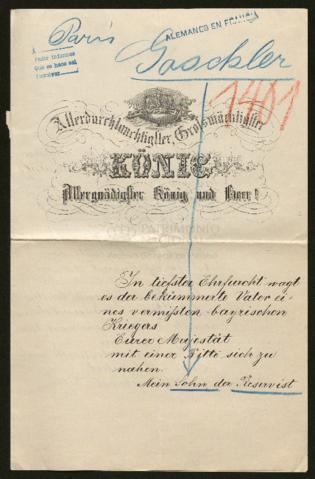 París
ALEMANES EN FRANCIA
Gaschler
Pedir informes
que se hace así
1401
Allerdurchlauchtigster, Großmächtigster
KÖNIG
Allergnädigster König und Herr!
PATRIMONIO
In tiefster Ehrfurcht wagt
es der bekümmerte Vater ei-
nes vermißten bayrischen
Kriegers
Eurer Majestät
mit einer Bitte sich zu
nahen.
Mein Sohn der Reservist